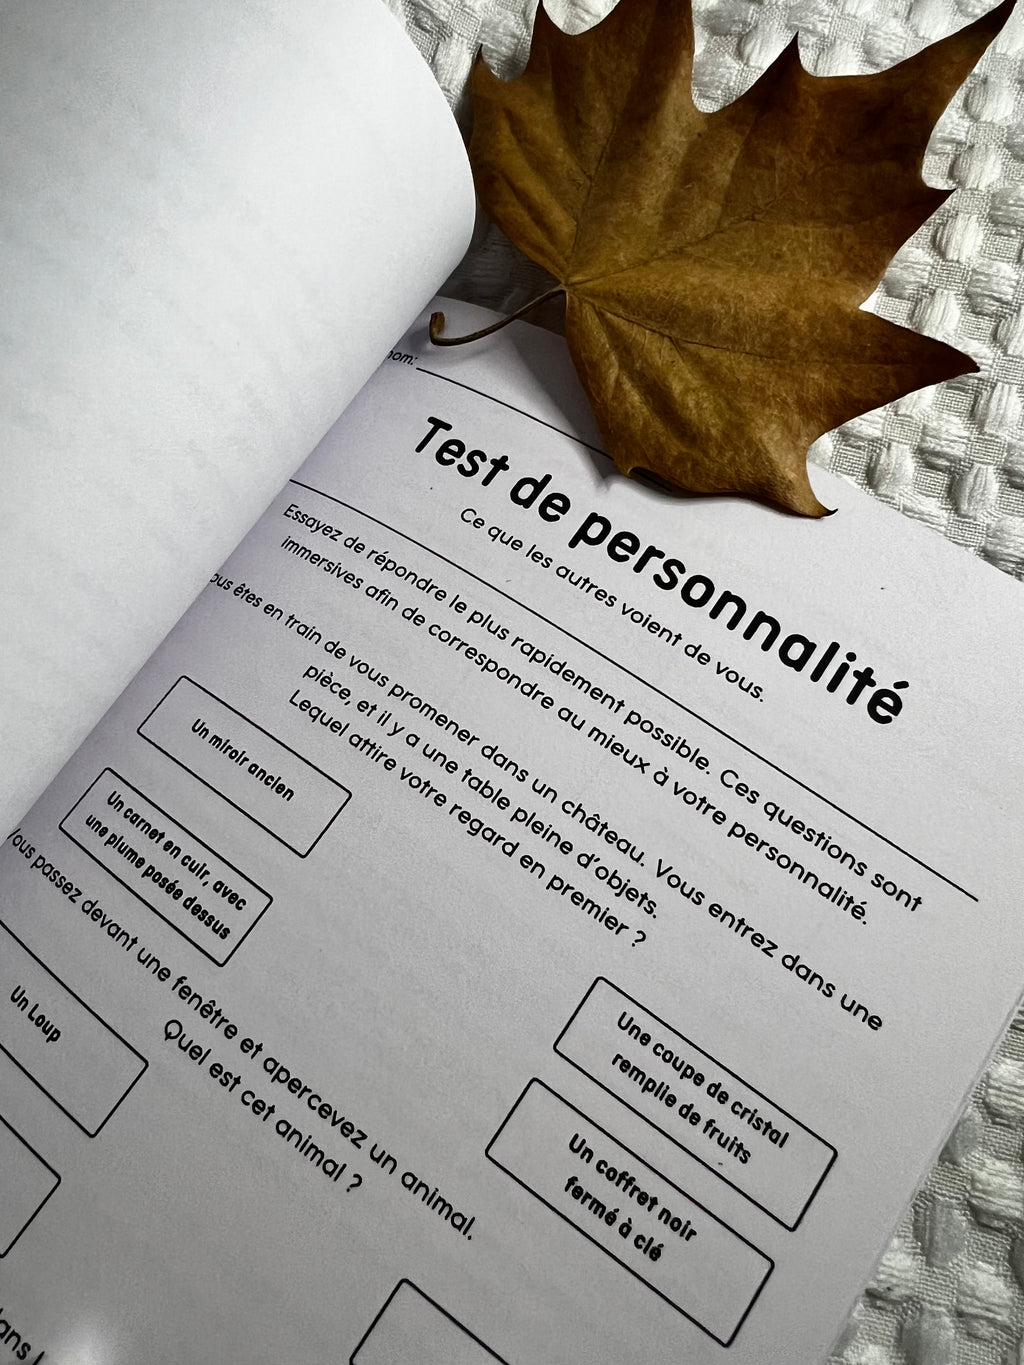 nom:
Test de personnalité
Ce que les autres voient de vous.
Essayez de répondre le plus rapidement possible. Ces questions sont
immersives afin de correspondre au mieux à votre personnalité.
ous êtes en train de vous promener dans un château. Vous entrez dans une
pièce, et il y a une table pleine d'objets.
Lequel attire votre regard en premier ?
Un miroir ancien
Une coupe de cristal
remplie de fruits
Un carnet en cuir, avec
une plume posée dessus
Un coffret noir
fermé à clé
Vous passez devant une fenêtre et apercevez un animal.
Quel est cet animal ?
Un Loup